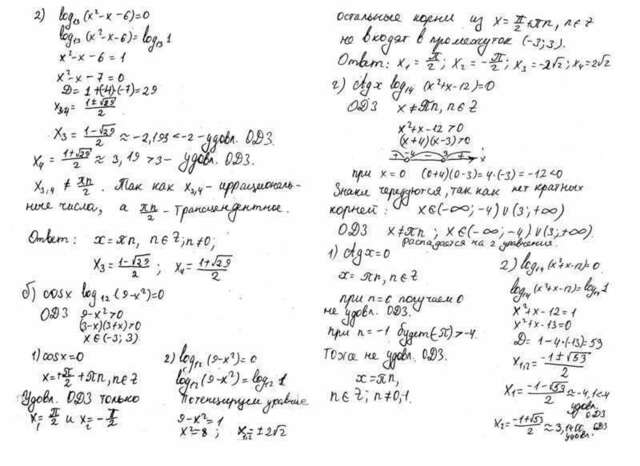 2) log₁₃(x²-x-6)=0
log₁₃(x²-x-6)=log₁₃1
x²-x-6=1
x²-x-7=0
D=1+(-4)·(-7)=29
x₃,₄=(1±√29)/2
x₃=(1-√29)/2≈-2,193<-2-удовл. ОДЗ.
x₄=(1+√29)/2≈3,19>3- удовл. ОДЗ.
x₃,₄≠πn/2. Так как x₃,₄-иррациональ-
ные числа, а πn/2-трансцендентное.
Ответ: x=πn, n∈Z; n≠0,
x₃=(1-√29)/2; x₄=(1+√29)/2
б) cosx log₁₂(9-x²)=0
ОДЗ 9-x²>0
(3-x)(3+x)>0
x∈(-3;3)
1) cosx=0
x=+π/2+πn, n∈Z
Удовл. ОДЗ только
x₁=π/2 и x₂=-π/2
2) log₁₂(9-x²)=0
log₁₂(9-x²)=log₁₂1
Потенцируем уравние
9-x²=1
x²=8; x₁,₂=±2√2
остальные корни из x=π/2+πn, n∈Z
не входят в промежуток (-3;3).
Ответ: x₁=π/2; x₂=-π/2; x₃=-2√2; x₄=2√2
г) ctgx log₁₄(x²+x-12)=0
ОДЗ x≠πn, n∈Z
x²+x-12>0
(x+4)(x-3)>0
+ -4 - 3 + x
при x=0 (0+4)(0-3)=4·(-3)=-12<0
Знаки чередуются, так как нет кратных
корней: x∈(-∞;-4)∪(3;+∞)
ОДЗ x≠πn; x∈(-∞;-4)∪(3;+∞).
Распадается на 2 уравнения.
1) ctgx=0
x=πn, n∈Z
при n=0 получаем 0
не удовл. ОДЗ.
при n=-1 будет(-π)>-4.
Тоже не удовл. ОДЗ.
x=πn,
n∈Z; n≠0,-1.
2) log₁₄(x²+x-12)=0
log₁₄(x²+x-12)=log₁₄1
x²+x-12=1
x²+x-13=0
D=1-4·(-13)=53
x₁,₂=(-1±√53)/2
x₁=(-1-√53)/2≈-4,1<4
удовл. ОДЗ
x₂=(-1+√53)/2≈3,140
удовл. ОДЗ